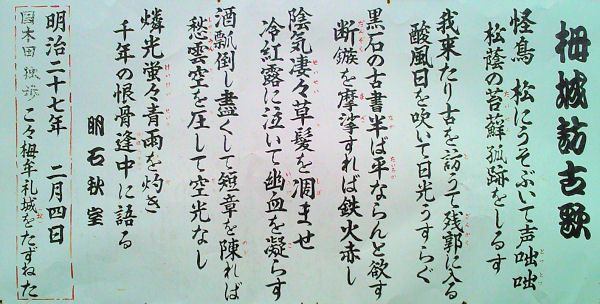 栂城訪古歌
怪鳥 松にうそぶいて声咄咄
松蔭の苔蘚孤跡をしるす
我来たり古を訪うて残郭に入る
酸風日を吹いて日光うすらぐ
黒石の古書半ば平ならんと欲す
断鏃を摩挲すれば鉄火赤し
陰気凄々草髪を凋ませ
冷紅露に泣いて幽血を凝らす
酒瓢倒し盡くして短章を陳れば
愁雲空を圧して空光なし
燐光蛍々青雨を灼き
千年の恨骨逢中に語る
明石秋室
明治二十七年 二月四日
国木田独歩 こゝ栂牟礼城をたずねた